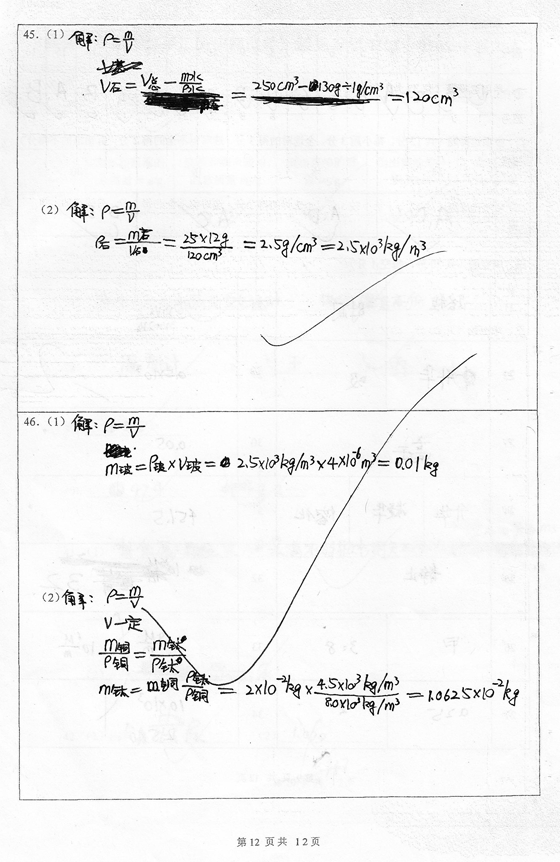 45.(1) 解: ρ=m/V
V石=V总-m水/ρ水=250cm³-130g÷1g/cm³=120cm³
(2) 解: ρ=m/V
ρ石=m石/V石=25×12g/120cm³=2.5g/cm³=2.5×10³kg/m³
46.(1) 解: ρ=m/V
m玻=ρ玻×V玻=2.5×10³kg/m³×4×10⁻⁶m³=0.01kg
(2) 解: ρ=m/V
V一定
m铜/ρ铜=m钛/ρ钛
m钛=m铜 ρ钛/ρ铜=2×10⁻²kg×4.5×10³kg/m³/8.0×10³kg/m³=1.0625×10⁻²kg
第 12 页 共 12 页